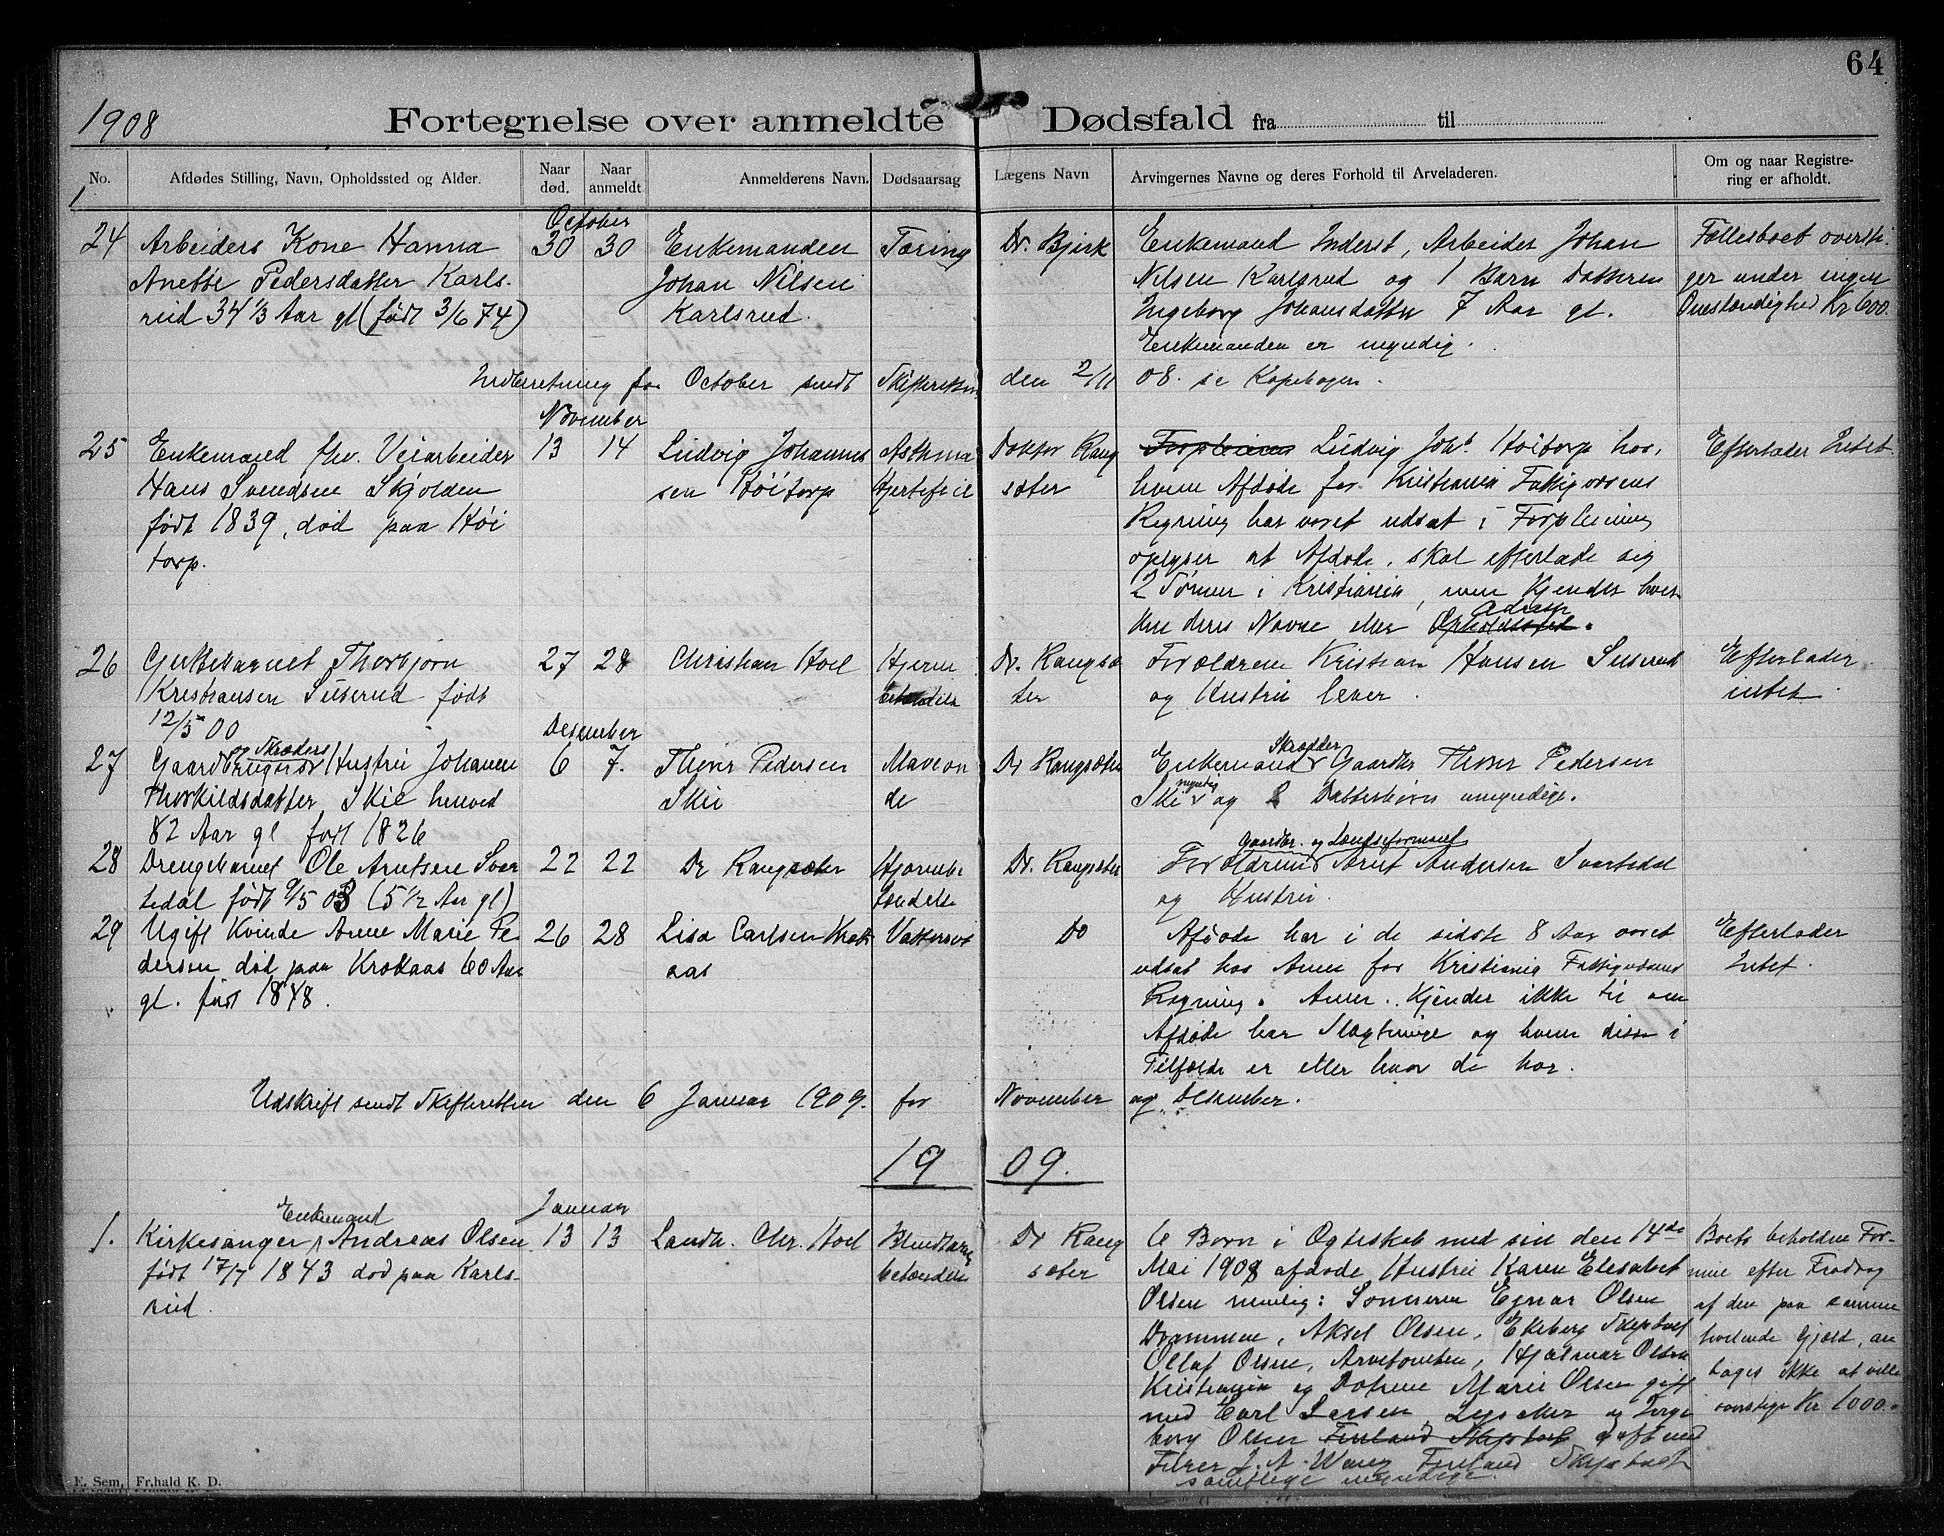 64
1908
Fortegnelse over anmeldte Dødsfald fra til
No.
Afdødes Stilling, Navn, Opholdssted og Alder.
Naar død.
Naar anmeldt
Anmelderens Navn.
Dødsaarsag
Lægens Navn
Arvingernes Navne og deres Forhold til Arveladeren.
Om og naar Registre-
ring er afholdt.
1
October
24 Arbeiders Kone Hanna 30 30 Enkemanden Tæring Dr. Bjirk Enkemand Inderst, Arbeider Johan Fællesboet oversti-
Anette Pedersdatter Karls- Johan Nilsen Nilsen Karlsrud og 1 Barn Datteren ger under ingen
rud 34 1/3 Aar gl (født 3/6 74) Karlsrud. Ingeborg Johansdatter 7 Aar gl. Omstændighed Kr 600.
Enkemanden er myndig.
Indberetning for October sendt Skifteretten den 2/11 08. se Kopibogen.
November
25 Enkemand fhv. Veiarbeider 13 14 Ludvig Johannes Asthma Doktor Rang Forpleieren Ludvig Johs Høitorp hos, Efterlader Intet
Hans Svendsen Skjolden sen Høitorp Hjertefeil sæter hvem Afdøde for Kristiania Fattigvæsens
født 1839, død paa Høi Regning har været udsat i Forpleining
torp. oplyser at Afdøde skal efterlade sig
2 Sønner i Kristiania, men kjender hver-
Adresse
ken deres Navne eller Opholdssted.
26 Gutebarnet Thorbjørn 27 28 Christian Hoel Hjerne Dr. Rangsæ Forældrene Kristian Hansen Suserud Efterlader
Kristiansen Suserud født betændelse ter og Hustru lever. intet.
12/5 00
Desember
og Skræders Skrædder
27 Gaardbrugers Hustru Johanne 6 7. Thorer Pedersen Maveon Dr Rangsæter Enkemand Gaardbr Thorer Pedersen
myndig
Thorkildsdatter Skie henved Skie de Ski og 2 Datterbørn umyndige.
82 Aar gl født 1826
Gaardbr. og Lændsformand
28 Drengebarnet Ole Arntsen Svar 22 22 Dr Rangsæter Hjernebe Dr. Rangsæter Forældrene Arnt Andersen Svartedal
tedal født 9/5 03 (5 1/2 Aar gl) tændelse og Hustru.
29 Ugift Kvinde Anne Marie Pe 26 28 Lisa Carlsen Krok Vattersot Do Afdøde har i de sidste 8 Aar været Efterlader
dersen død paa Krokaas 60 Aar aas udsat hos Anm for Kristiania Fattigvæsens Intet.
gl. født 1848. Regning. Anm. kjender ikke til om
Afdøde har Slægtninge og hvem disse i
Tilfælde er eller hvor de bor.
Udskrift sendt Skifteretten den 6 Januar 1909. for November og Desember.
1909.
Enkemand Januar
1. Kirkesanger Andreas Olsen 13 13 Landh. Chr. Hoel Blindtarms Dr Rang 6 Børn i Ægteskab med sin den 14de Boets beholdne For-
født 17/7 1843 død paa Karls- betændelse sæter Mai 1908 afdøde Hustru Karen Elisabet mue efter Fradrag
rud. Olsen nemlig: Sønnerne Ejnar Olsen af den paa samme
Drammen, Aksel Olsen, Ekeberg Skiptvet hvilende Gjæld, an
Ollaf Olsen, Arvetomten, Hjalmar Olsen tages ikke at ville
Kristiania og Døtrene Marie Olsen gift overstige Kr 1000.
med Carl Larsen Lysaker og Inge
borg Olsen Finland Skiptvet gift med
Filer L. A. Wang Finland Skiptvet
samtlige myndige.
E. Sem, Fr.hald K. D.